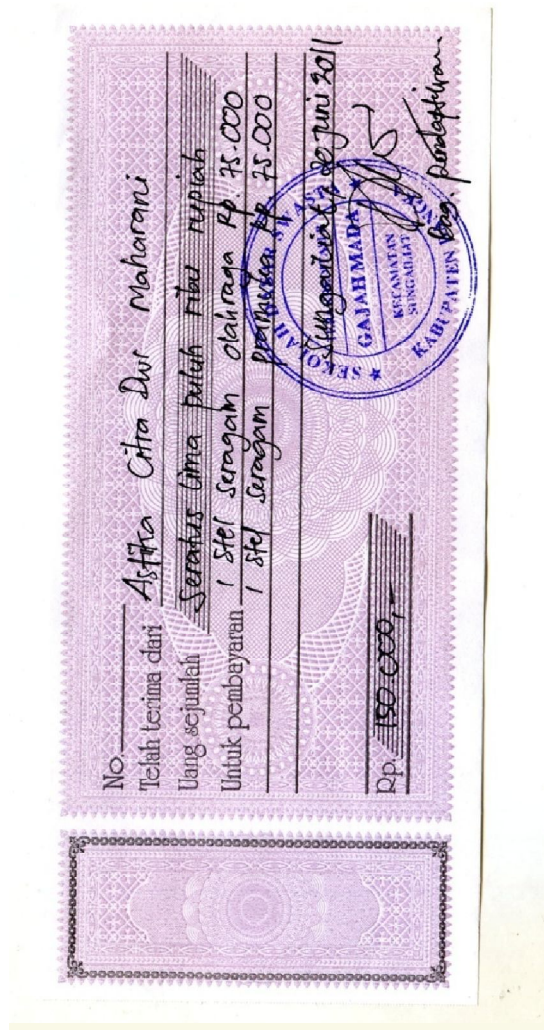 No.
Telah terima dari Astika Citra Dwi Maharani
Uang sejumlah Seratus lima puluh ribu rupiah
Untuk pembayaran 1 stel seragam olahraga Rp 75.000
1 stel seragam pramuka Rp 75.000
Sungailiat, 20 Juni 2011
SEKOLAH DASAR SWASTA
GAJAH MADA
KECAMATAN
SUNGAILIAT
KABUPATEN
Rp. 150.000,-
Bag. Pendaftaran